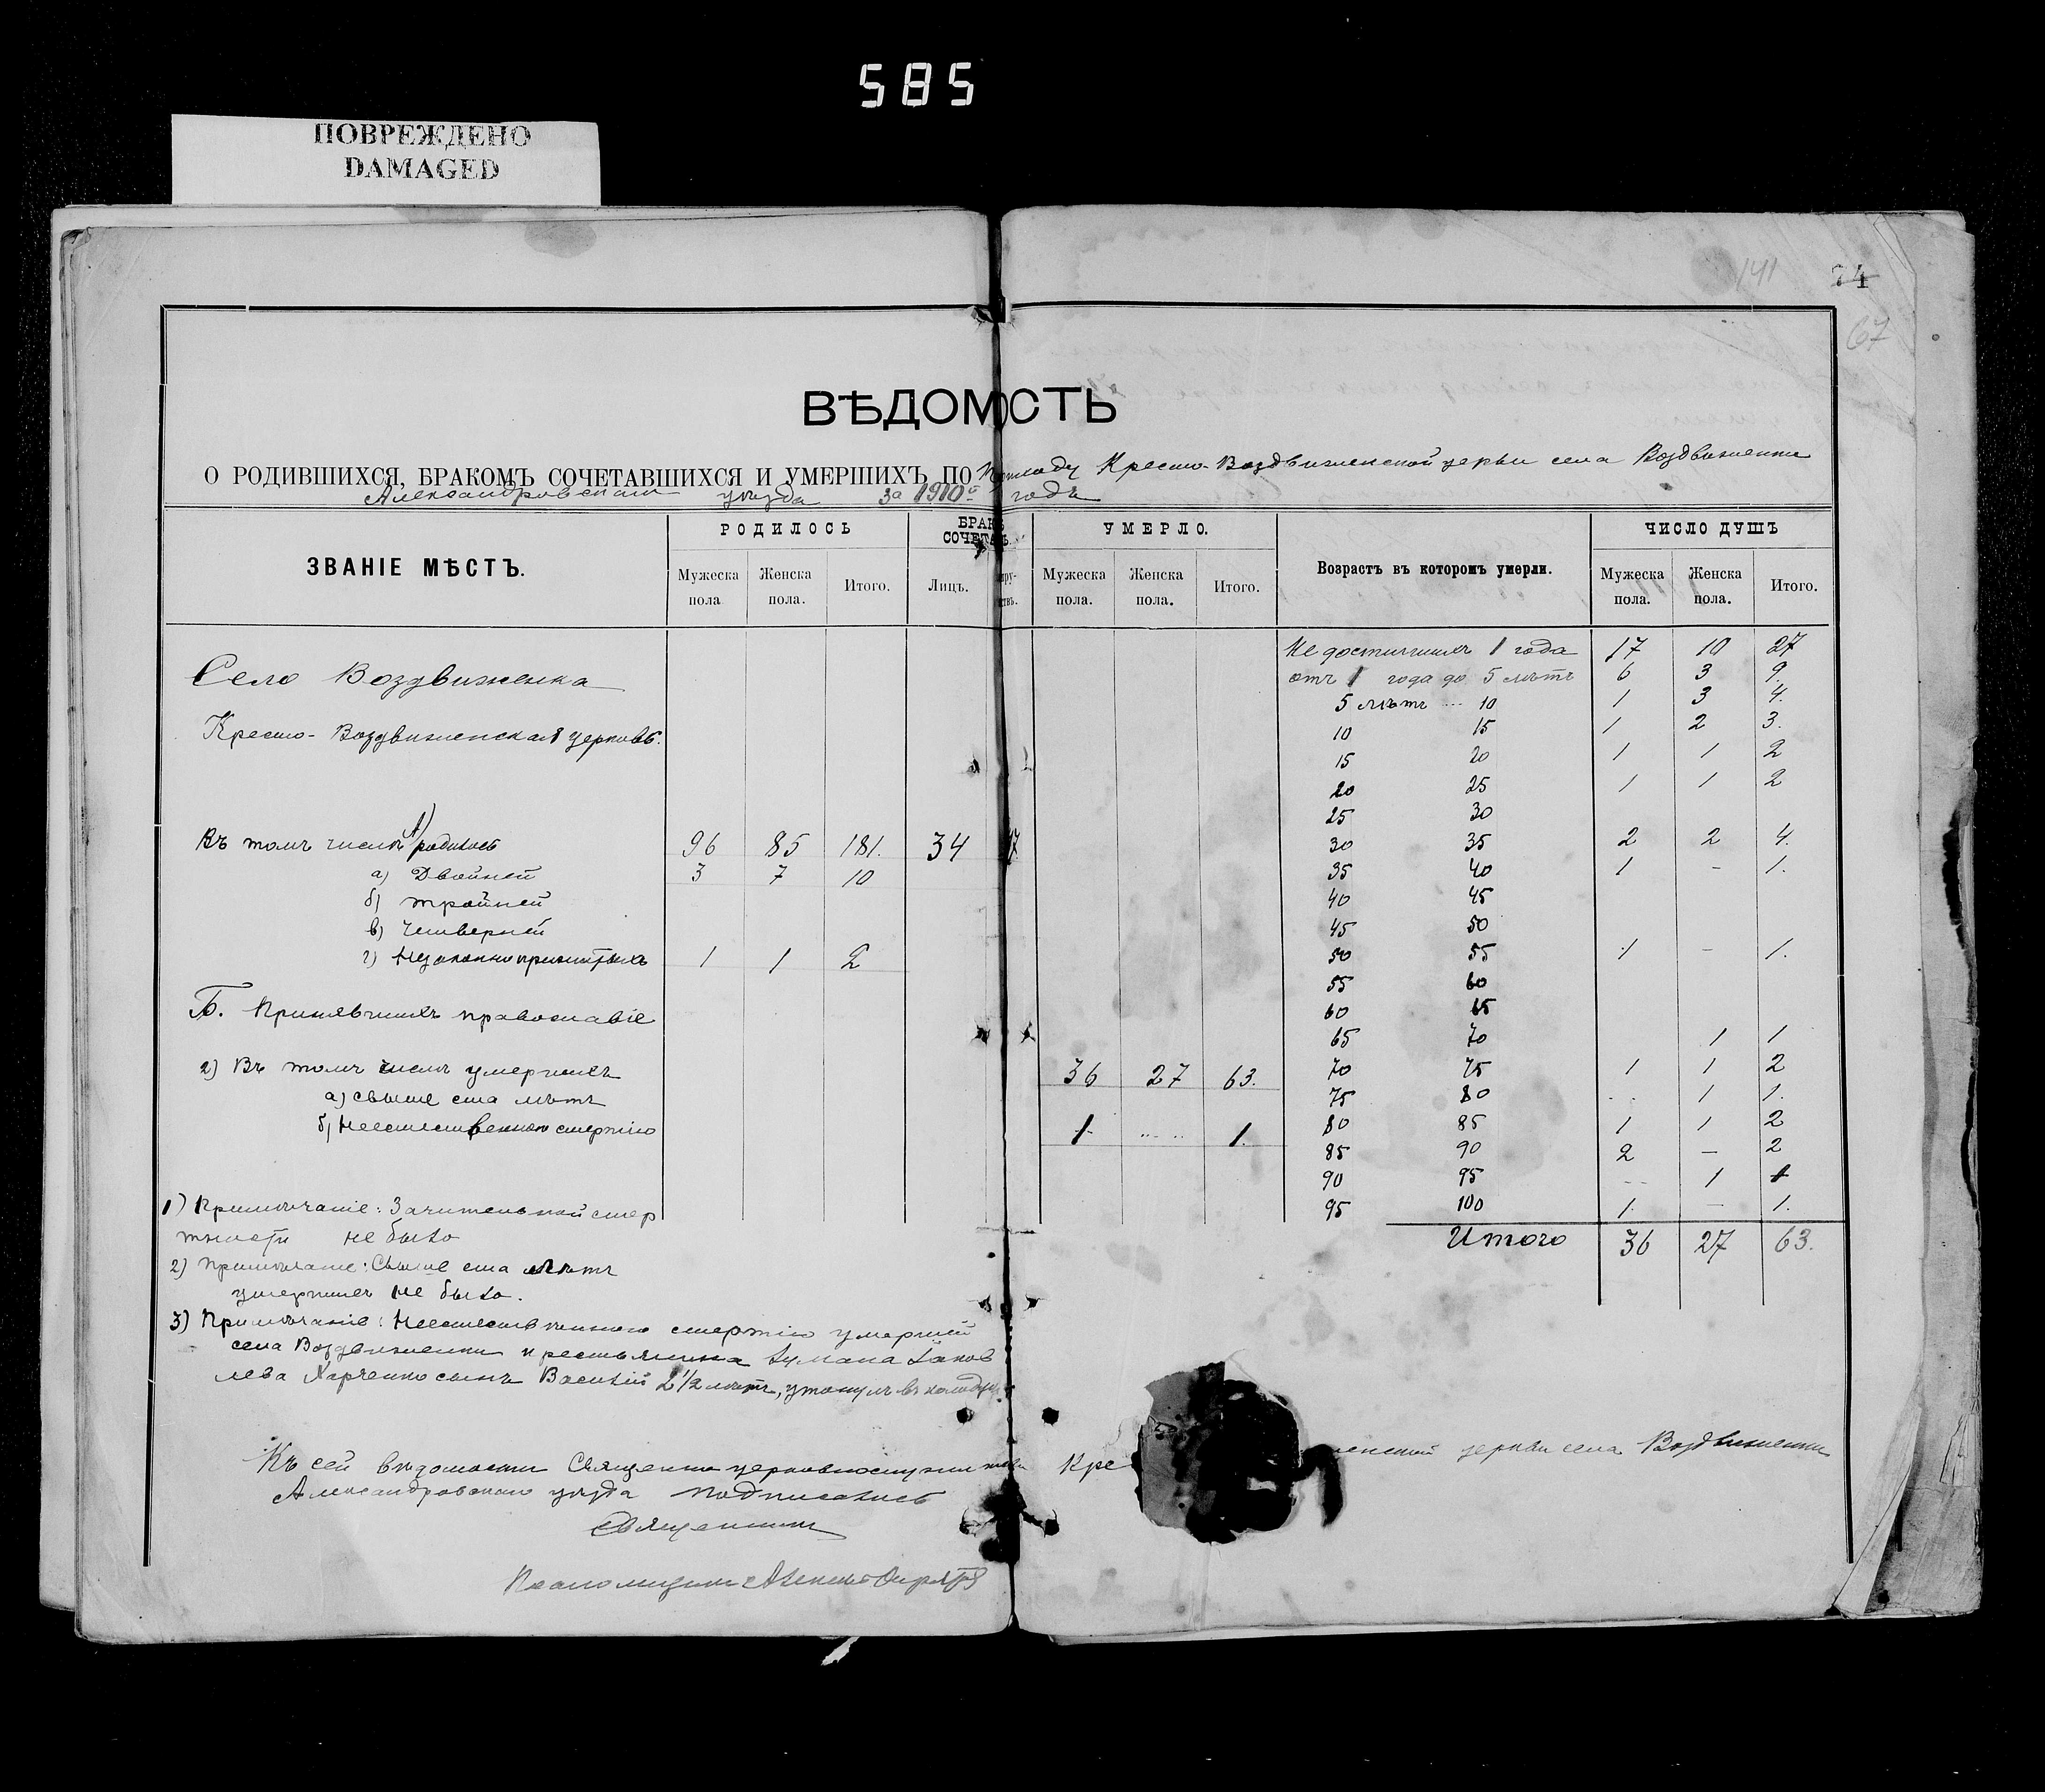 585
ПОВРЕЖДЕНО
DAMAGED
141
74
67
ВѢДОМОСТЬ
О РОДИВШИХСЯ, БРАКОМЪ СОЧЕТАВШИХСЯ И УМЕРШИХЪ ПО приходу Кресто-Воздвиженской церкви села Воздвиженки
Александровскаго уѣзда за 1910й годъ
ЗВАНІЕ МѢСТЪ. РОДИЛОСЬ БРАК СОЧЕТА УМЕРЛО. Возрастъ въ которомъ умерли. ЧИСЛО ДУШЪ
Мужеска пола. Женска пола. Итого. Лицъ. Мужеска пола. Женска пола. Итого. Мужеска пола. Женска пола. Итого.
Село Воздвиженка
Кресто-Воздвиженская церковь.
Въ томъ числѣ А) родилось 96 85 181. 34 17
а) Двойней 3 7 10
б) тройней
в) Четверней
г) Незаконноприжитыхъ 1 1 2
Б. Принявшихъ православіе
2) Въ томъ числѣ умершихъ 36 27 63.
а) свыше ста лѣтъ
б) Неестественною смертію 1 1.
Не достигшихъ 1 года 17 10 27
отъ 1 года до 5 лѣтъ 6 3 9.
5 лѣтъ 10 1 3 4.
10 15 1 2 3.
15 20 1 1 2
20 25 1 1 2
25 30
30 35 2 2 4.
35 40 1 - 1.
40 45
45 50
50 55 1 - 1.
55 60
60 65
65 70 1 1
70 75 1 1 2
75 80 1 1.
80 85 1 1 2
85 90 2 - 2
90 95 1 1
95 100 1. - 1.
Итого 36 27 63.
1) Примѣчаніе: Значительной смер
тности не было
2) Примѣчаніе: Свыше ста лѣтъ
умершихъ не было.
3) Примѣчаніе: Неестественною смертію умершій
села Воздвиженки крестьянина Яков
лева Харченко сынъ Василій 2 1/2 лѣтъ, утонулъ въ колодцѣ
Къ сей вѣдомости Священно церковнослужители Кре енской церкви села Воздвиженки
Александровскаго уѣзда подписались
Священникъ
Псаломщикъ